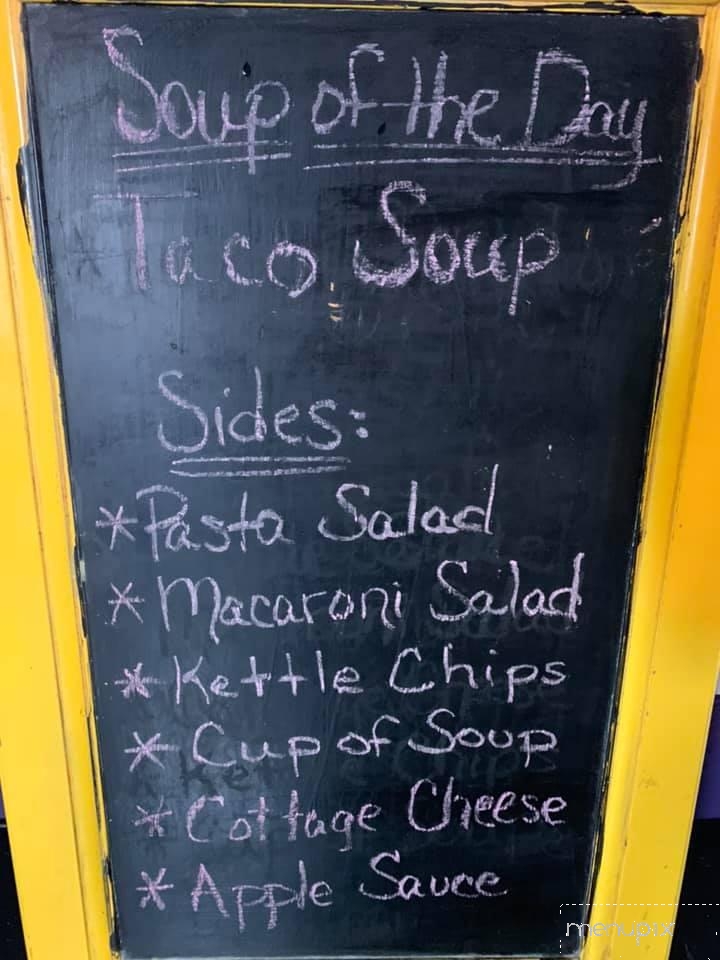 Soup of the Day
Taco Soup
Sides:
*Pasta Salad
*Macaroni Salad
*Kettle Chips
*Cup of Soup
*Cottage Cheese
*Apple Sauce
menupix